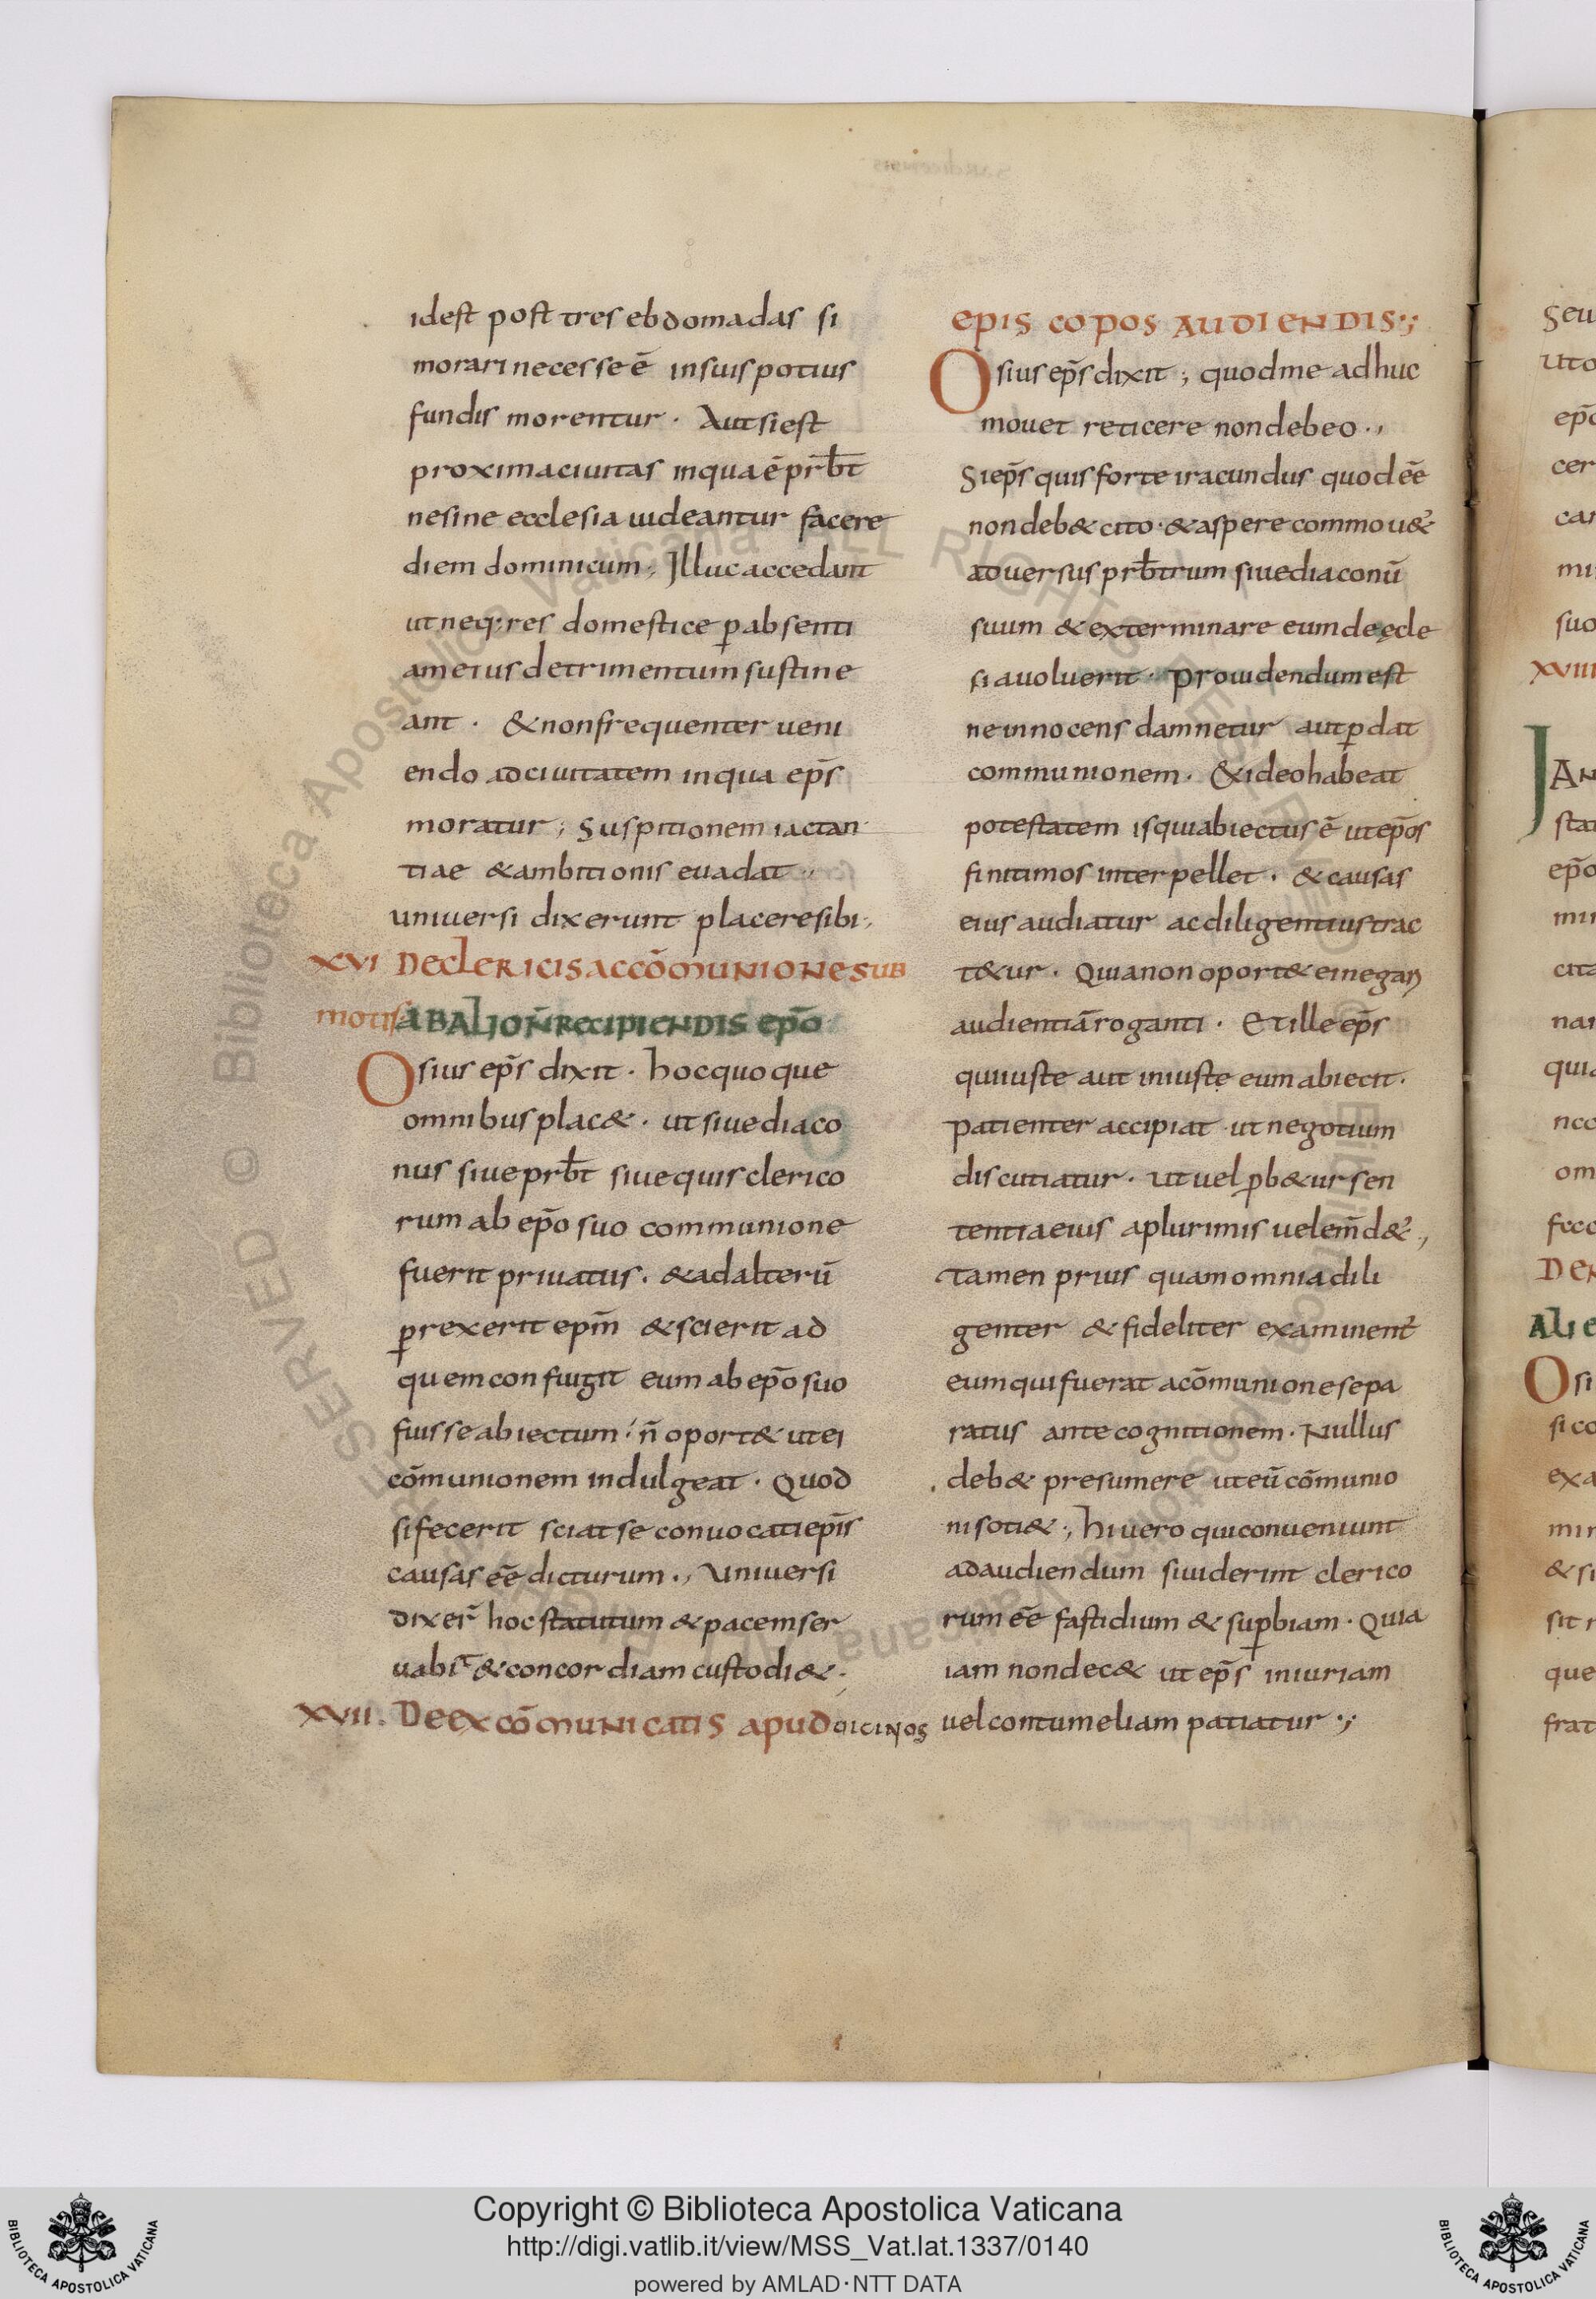 idest post tres ebdomadas si
morari necesse ē in suis potius
fundis morentur · Aut si est
proxima ciuitas in qua ē prb̄t
ne sine ecclesia uideantur facere
diem dominicum ; Illuc accedant
ut neq; res domestice p absenti
am eius detrimentum sustine
ant · & non frequenter ueni
endo ad ciuitatem in qua ep̄s
moratur ; suspitionem iactan
tiae & ambitionis euadat ·
uniuersi dixerunt placere sibi ;
XVI De clericis a ccōmunione sub
motis ab alio n̄ recipiendis ep̄o
Osius ep̄s dixit · hoc quoque
omnibus plac& · ut siue diaco
nus siue prb̄t siue quis clerico
rum ab ep̄o suo communione
fuerit priuatus · & ad alterū
prexerit epm̄ & scierit ad
quem confugit eum ab ep̄o suo
fuisse abiectum n̄ oport& ut ei
cōmunionem indulgeat · Quod
si fecerit sciat se conuocati ep̄is
causas eē dicturum ·, Uniuersi
dixer̄ hoc statutum & pacem ser
uabit & concordiam custodi& ·
XVII · De excōmunicatis apud uicinos
episcopos audiendis ·;
Osius ep̄s dixit ; quod me adhuc
mouet reticere non debeo ·,
Si ep̄s quis forte iracundus quod eē
non deb& cito · & aspere commou&
aduersus prb̄trum siue diaconū
suum & exterminare eum de ęcle
sia uoluerit · Prouidendum est
ne innocens damnetur aut pdat
communionem · & ideo habeat
potestatem is qui abiectus ē ut ep̄os
finitimos interpellet · & causas
eius audiatur ac diligentius trac
t&ur · Quia non oport& ei negari
audientiā roganti · Et ille ep̄s
qui iuste aut iniuste eum abiecit ·
Patienter accipiat ut negotium
discutiatur · ut uel pb&ur sen
tentia eius a plurimis uel em̄d& ·,
tamen prius quam omnia dili
genter & fideliter examinent
eum qui fuerat a cōmunione sepa
ratus ante cognitionem · Nullus
deb& presumere ut eū cōmunio
ni soti& ·, hi uero qui conueniunt
ad audiendum si uiderint clerico
rum eē fastidium & supbiam · Quia
iam non dec& ut ep̄s iniuriam
uel contumeliam patiatur ·;
seu
uto
ep̄o
cer
car
mi
suo
XVIII
JAN
stat
ep̄o
mi
cita
nar
quia
nco
om
fece
DE
ALIE
Osi
si co
exa
min
& si
sit
que
frat
© Biblioteca Apostolica Vaticana ALL RIGHTS RESERVED
Copyright © Biblioteca Apostolica Vaticana
http://digi.vatlib.it/view/MSS_Vat.lat.1337/0140
powered by AMLAD·NTT DATA
BIBLIOTECA APOSTOLICA VATICANA
BIBLIOTECA APOSTOLICA VATICANA